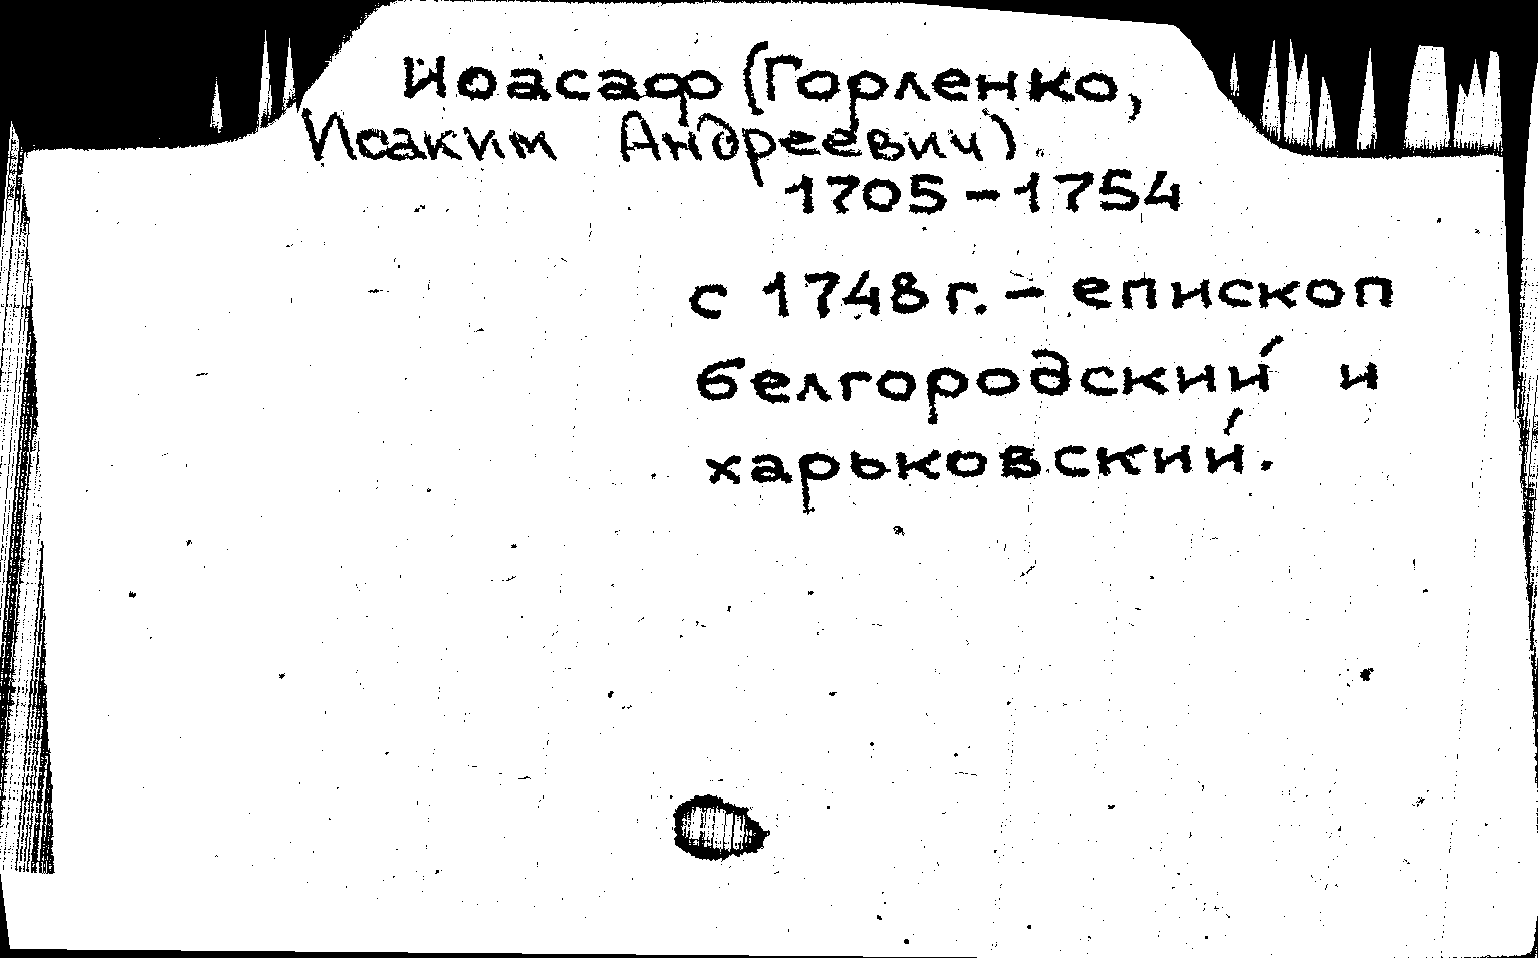 Иоасаф (Горленко,
Исаким Андреевич)
1705-1754
с 1748 г. - епископ
белгородский и
харьковский.